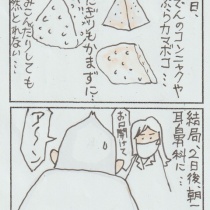 日、
でんのコンニャクや
ぷらカマボコ…
にぎりをかまずに…
みこんだりしても
然とれない…
結局、2日後、朝一
耳鼻科に…
お口開けて
アーン